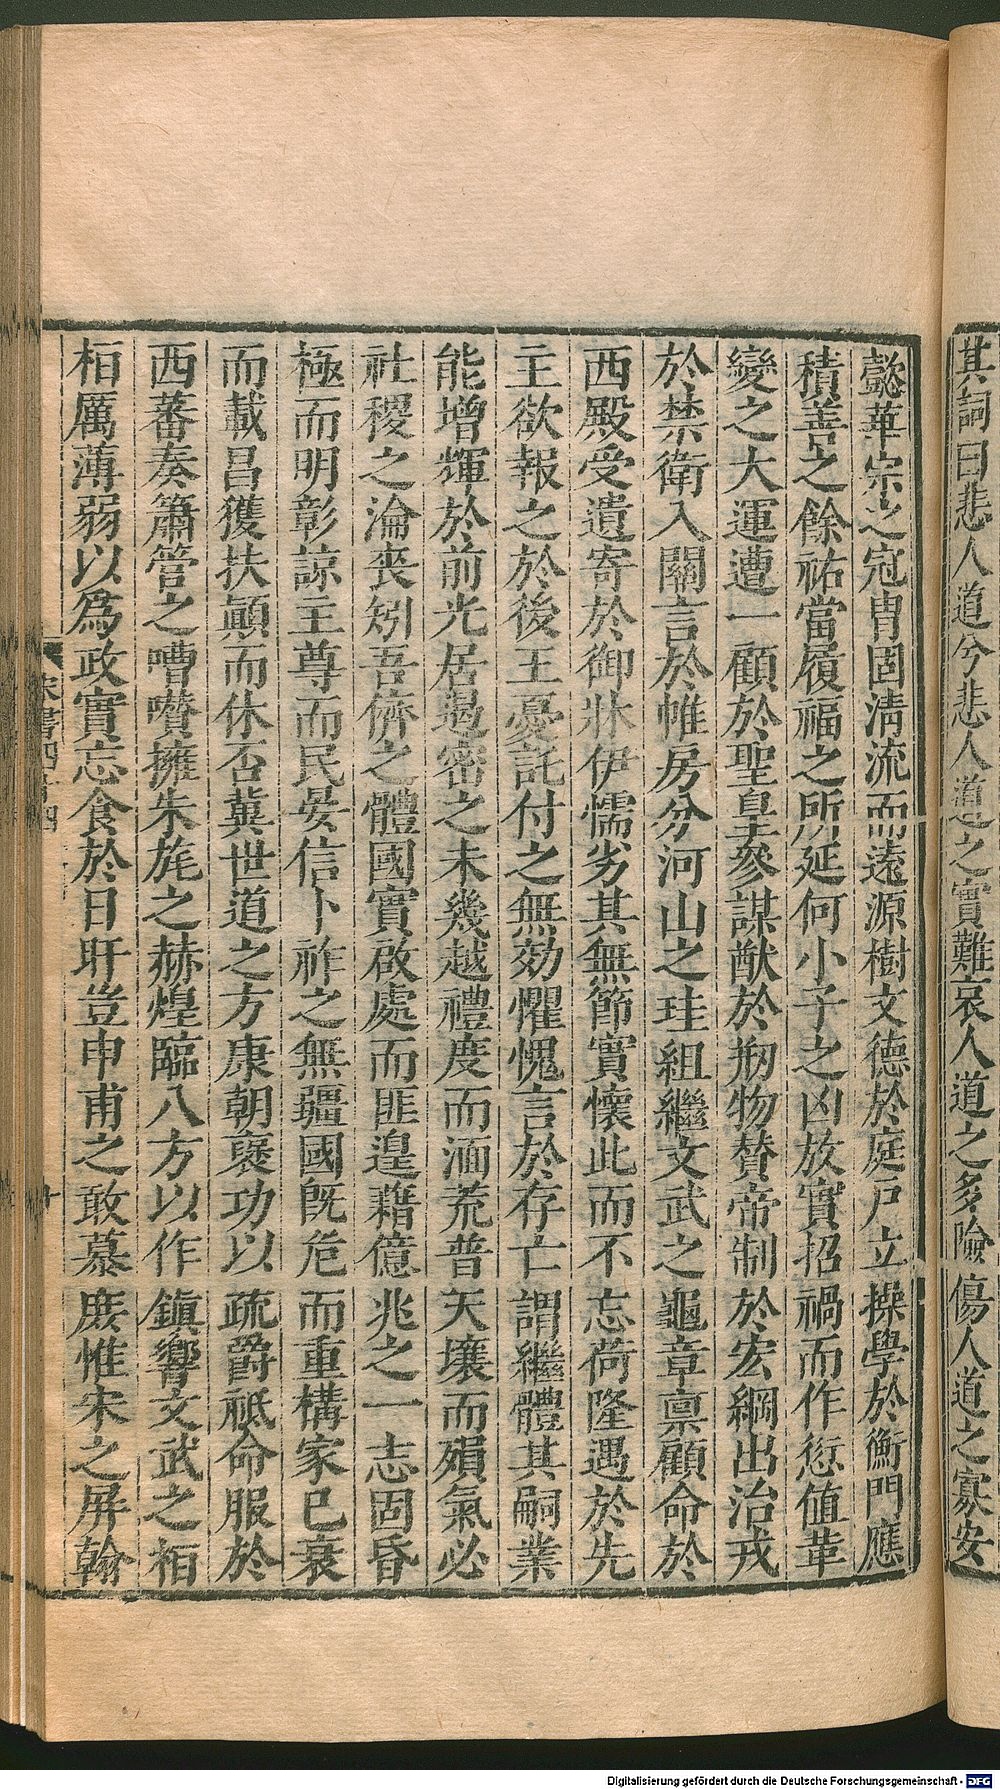 其詞曰悲人道兮悲人道之實難哀人道之多險傷人道之寡安
懿華宗之冠冑固清流而遠源樹文德於庭戶立操學於衡門應
積善之餘祐當履福之所延何小子之凶放實招禍而作愆值革
變之大運遭一顧於聖皇參謀猷於刱物贊帝制於宏綱出治戎
於禁衛入關言於帷房分河山之珪組繼文武之龜章禀顧命於
西殿受遺寄於御牀伊懦劣其無節實懷此而不忘荷隆遇於先
主欲報之於後王憂託付之無効懼愧言於存亡謂繼體其嗣業
能增輝於前光居遏密之未幾越禮度而湎荒普天壤而殞氣必
社稷之淪喪矧吾儕之體國實啟處而匪遑藉億兆之一志固昏
極而明彰諒主尊而民晏信卜祚之無疆國旣危而重構家已衰
而載昌獲扶顛而休否冀世道之方康朝襃功以疏爵祗命服於
西蕃奏簫管之嘈囋擁朱旄之赫煌臨八方以作鎮響文武之柏
柏厲薄弱以爲政實忘食於日旰豈申甫之敢慕庶惟宋之屏翰
宋書四
十
Digitalisierung gefördert durch die Deutsche Forschungsgemeinschaft - DFG